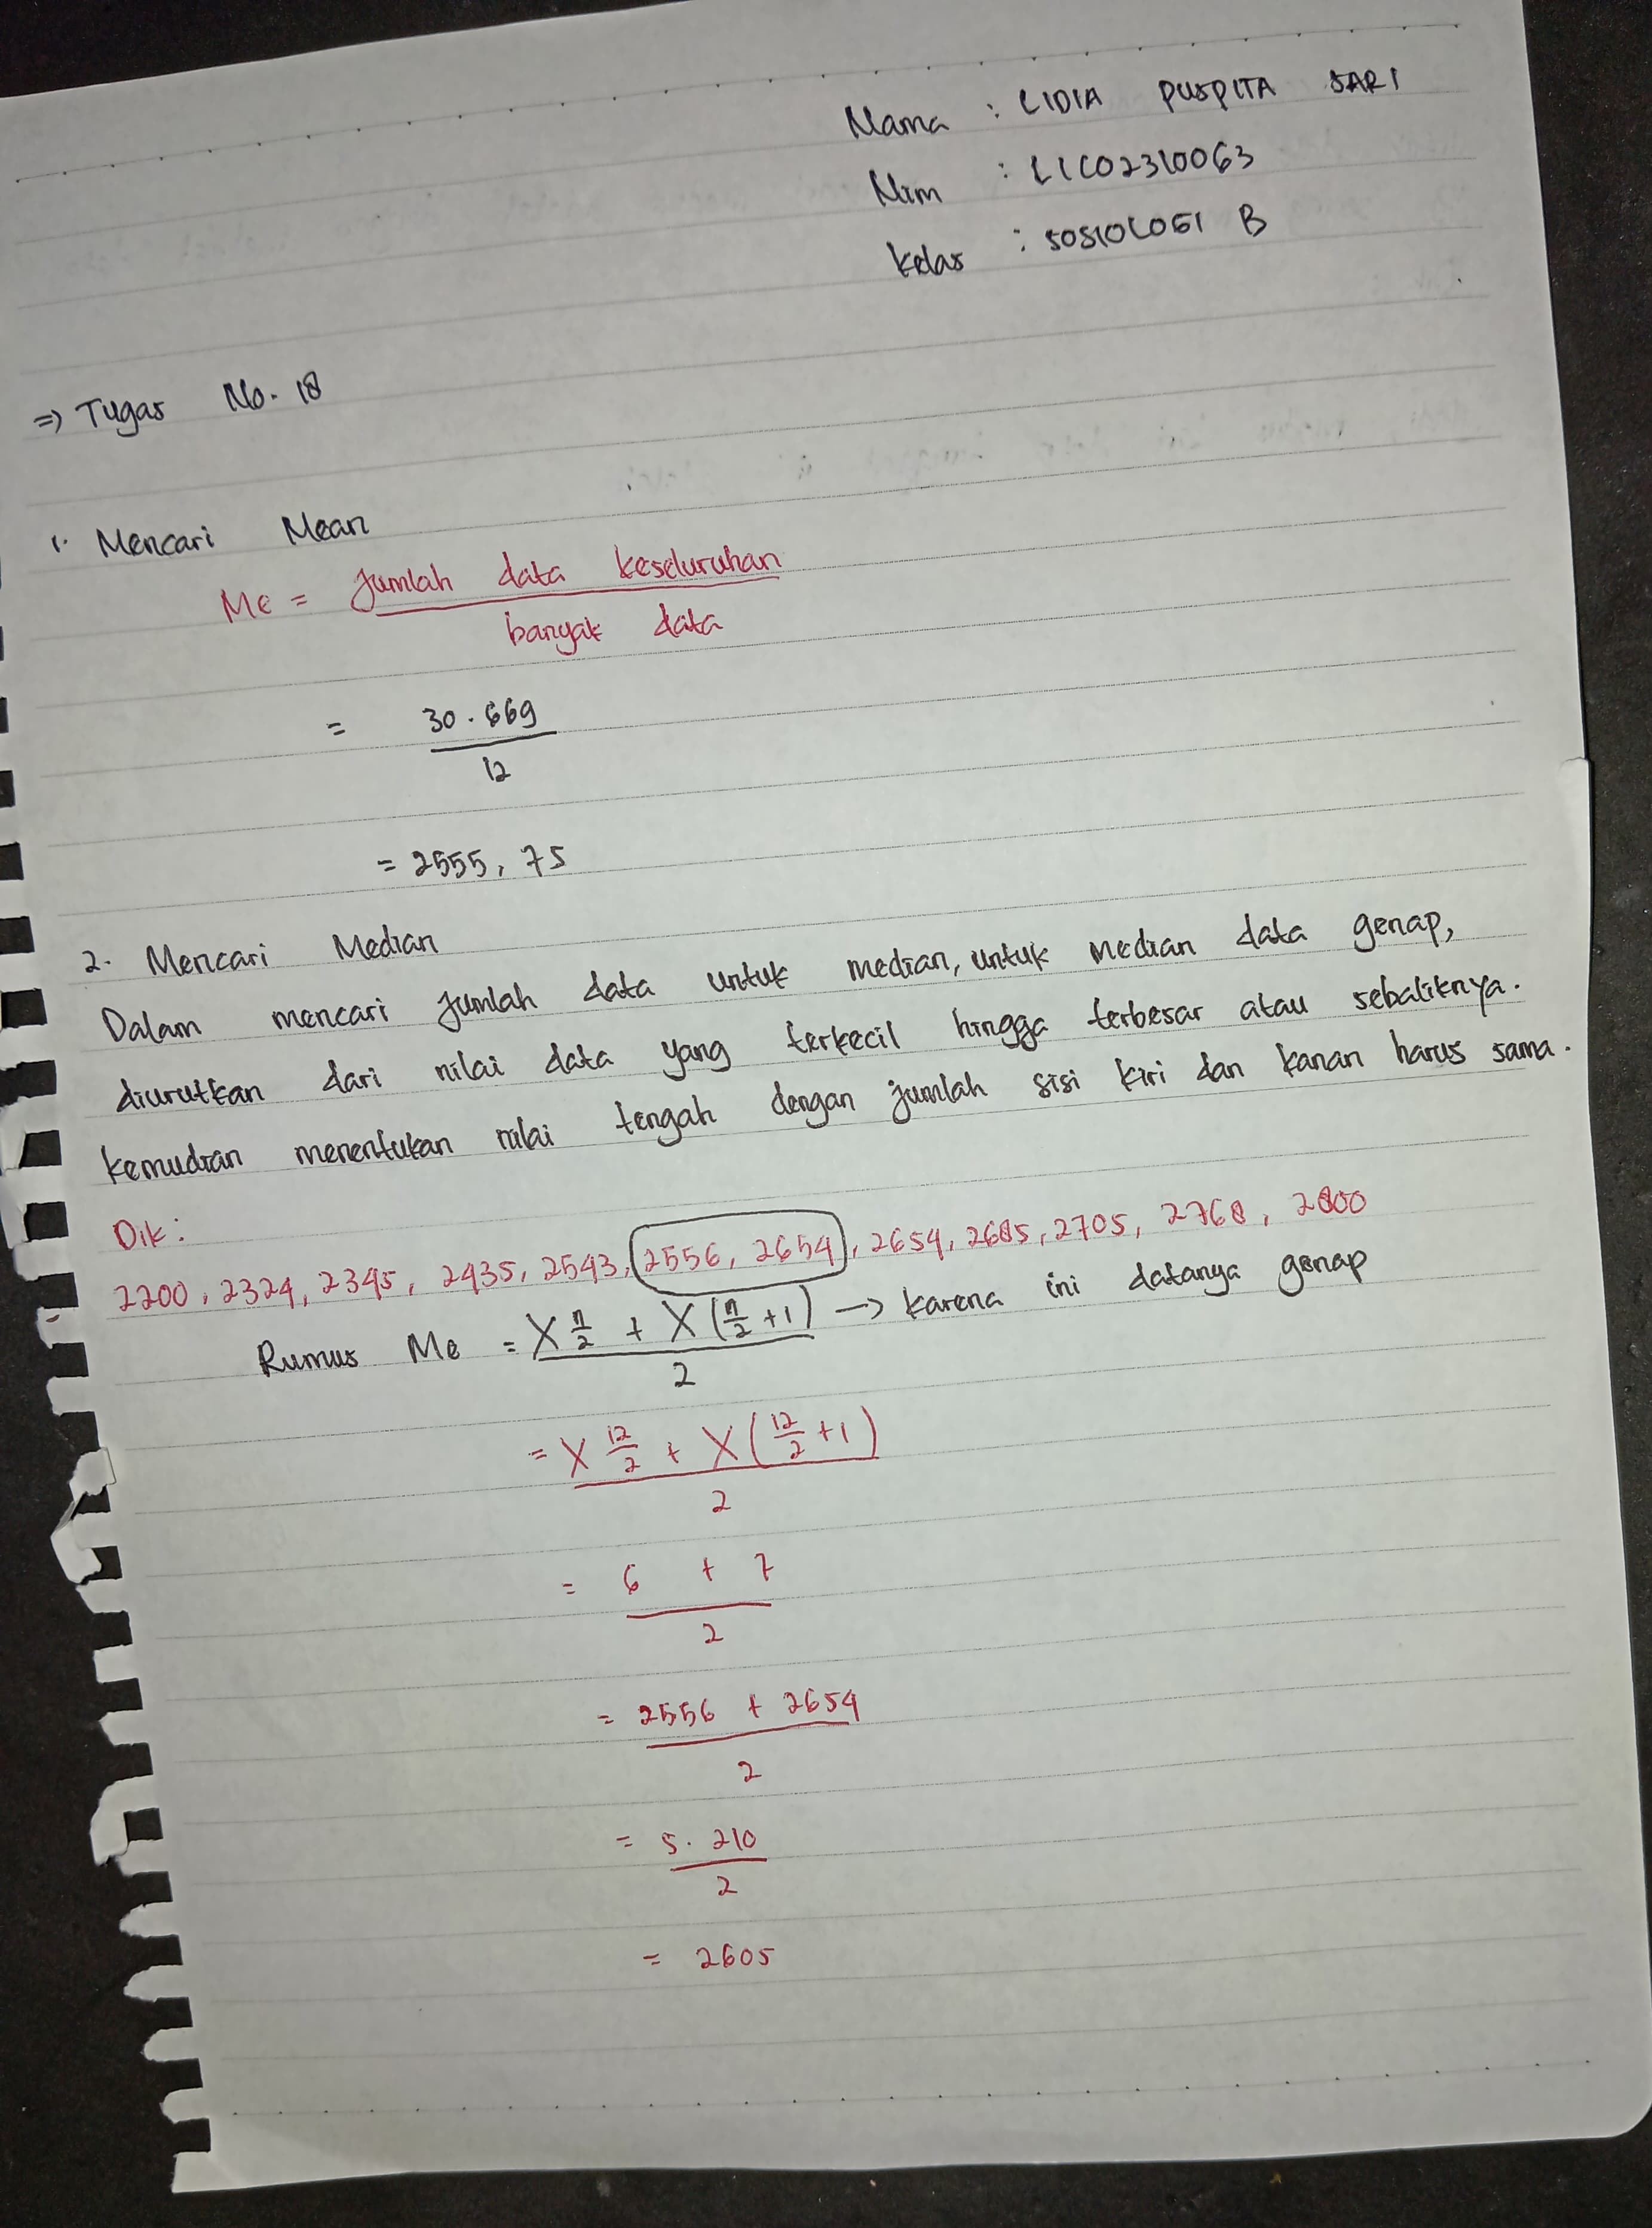 Nama : LIDIA PUSPITA SARI
Nim : 11C02310063
Kelas : SOSIOLOGI B
=> Tugas No. 18
1. Mencari Mean
Me = Jumlah data keseluruhan / banyak data
= 30.669 / 12
= 2555,75
2. Mencari Median
Dalam mencari jumlah data untuk median, untuk median data genap,
diurutkan dari nilai data yang terkecil hingga terbesar atau sebaliknya.
kemudian menentukan nilai tengah dengan jumlah sisi kiri dan kanan harus sama.
Dik:
2200, 2324, 2345, 2435, 2543, 2556, 2654, 2654, 2685, 2705, 2768, 2800
Rumus Me = X n/2 + X (n/2 + 1) / 2 → karena ini datanya genap
= X 12/2 + X (12/2 + 1) / 2
= 6 + 7 / 2
= 2556 + 2654 / 2
= 5.210 / 2
= 2605